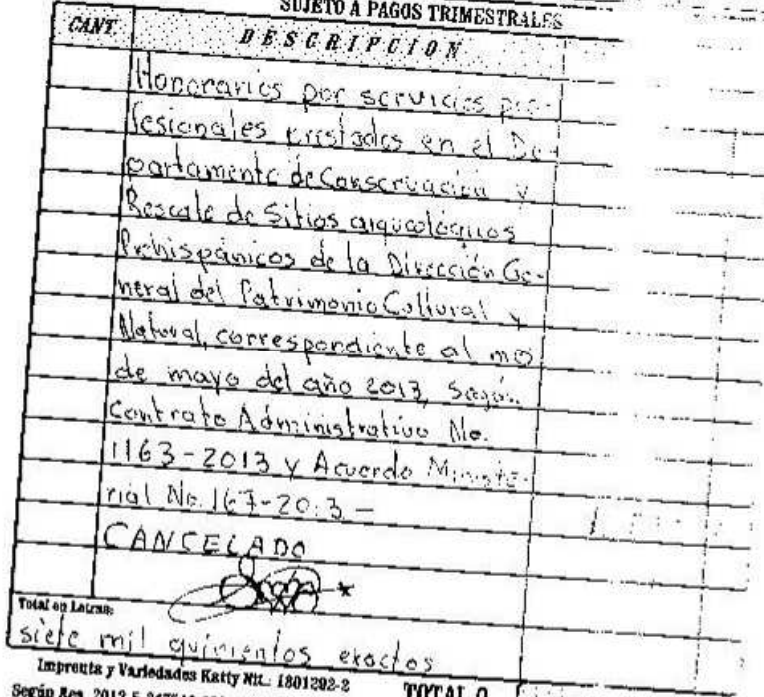 SUJETO A PAGOS TRIMESTRALES
CANT. DESCRIPCION
Honorarios por servicios pro-
fesionales prestados en el De-
partamento de Conservación y
Rescate de Sitios arqueológicos
Prehispánicos de la Dirección Ge-
neral del Patrimonio Cultural y
Natural, correspondiente al mes
de mayo del año 2013, Según
Contrato Administrativo No.
1163-2013 y Acuerdo Ministe-
rial No. 167-2013-
CANCELADO
Total en Letras:
siete mil quinientos exactos
Imprenta y Variedades Katty Nit.: 1801292-2
TOTAL Q.
Según Res. 2012-5-